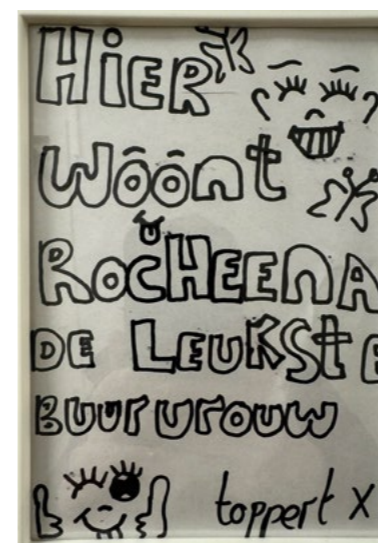 HiER
WôônT
ROCHEEnA
DE LEUKStE
BUURVROUW
toppert X